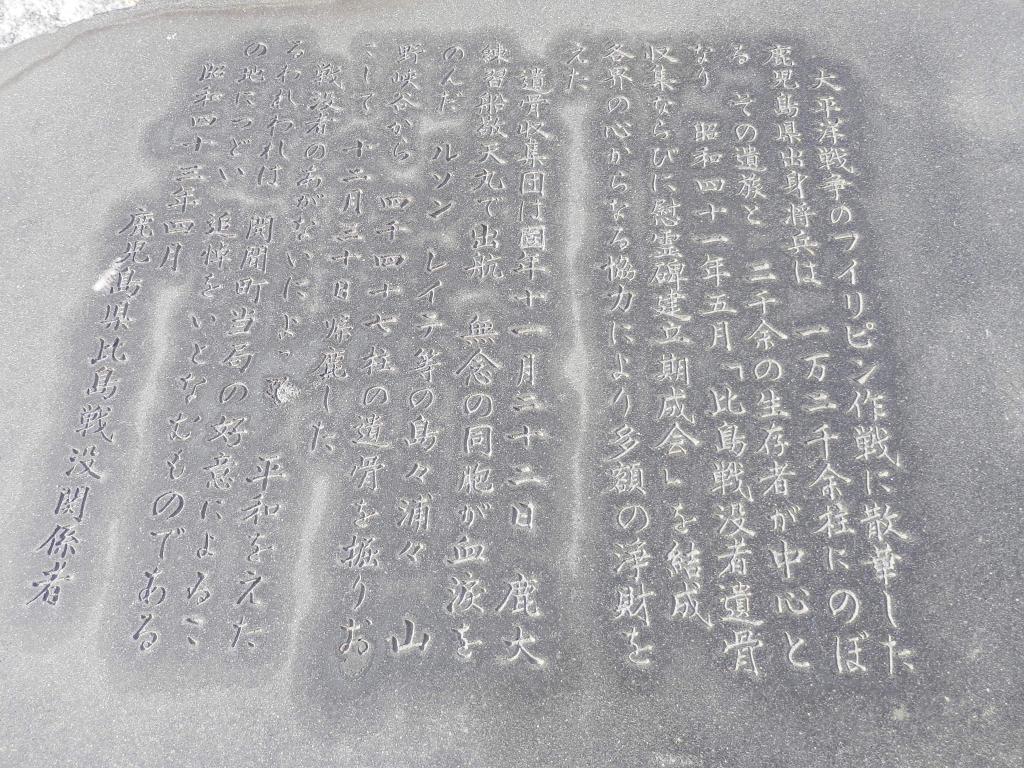 大平洋戦争のフイリピン作戦に散華した
鹿児島県出身将兵は 一万二千余柱にのぼ
る その遺族と 二千余の生存者が中心と
なり 昭和四十一年五月「比島戦没者遺骨
収集ならびに慰霊碑建立期成会」を結成
各界の心からなる協力により多額の浄財を
えた
遺骨収集団は 年十一月二十二日 鹿大
練習船敬天丸で出航 無念の同胞が血涙を
のんだ ルソン レイテ等の島々浦々 山
野峡谷から 四千四十七柱の遺骨を掘りお
こして 十二月三十日 帰鹿した
戦没者のあがないによっ 平和をえた
るわれわれは 開聞町当局の好意によるこ
の地につどい 追悼をいとなむものである
昭和四十三年四月
鹿児島県比島戦没関係者